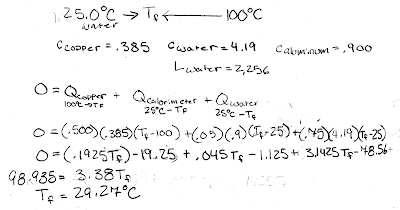 25.0°C → Tf ← 100°C
water
Ccopper = .385 Cwater = 4.19 Caluminum = .900
Lwater = 2,256
0 = Qcopper + Qcalorimeter + Qwater
100°C→Tf 25°C - Tf 25°C - Tf
0 = (.500)(.385)(Tf-100) + (.05)(.9)(Tf-25) + (.75)(4.19)(Tf-25)
0 = (.1925Tf) - 19.25 + .045Tf - 1.125 + 3.1425Tf - 78.56
98.935 = 3.38Tf
Tf = 29.27°C